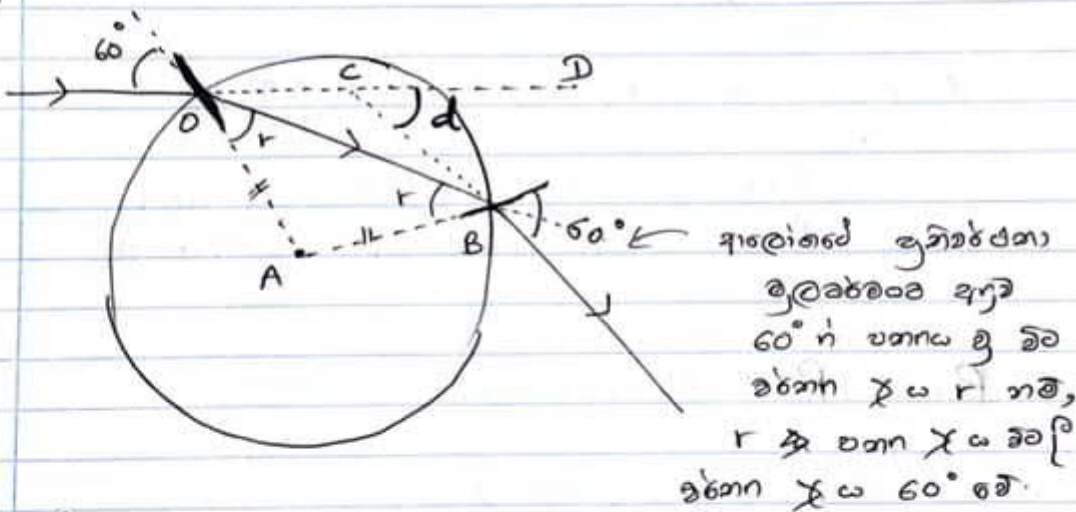 60°
C
D
O
d
r
r
A
B
60° ආලෝකයේ ප්‍රතිවර්තතා
මූලධර්මයට අනුව
60° න් පතනය වූ විට
වර්තන ∡ ය r නම්,
r පතන ∡ ය විට
වර්තන ∡ ය 60° වේ.